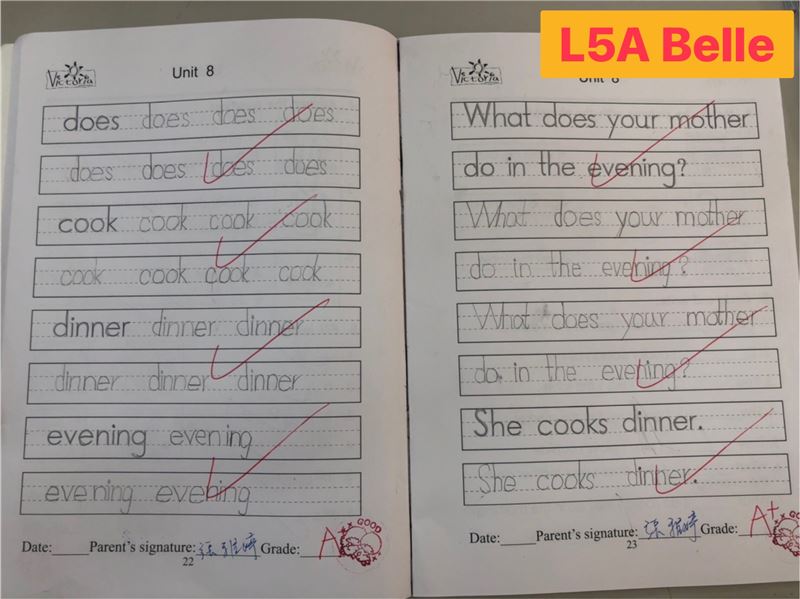 L5A Belle
Victoria
Unit 8
does does does does
does does does does
cook cook cook cook
cook cook cook cook
dinner dinner dinner
dinner dinner dinner
evening evening
evening evening
Date:_____Parent's signature: Grade: A
GOOD
22
Victoria
Unit 8
What does your mother
do in the evening?
What does your mother
do in the evening?
What does your mother
do in the evening?
She cooks dinner.
She cooks dinner.
Date:_____Parent's signature: Grade: A+
23